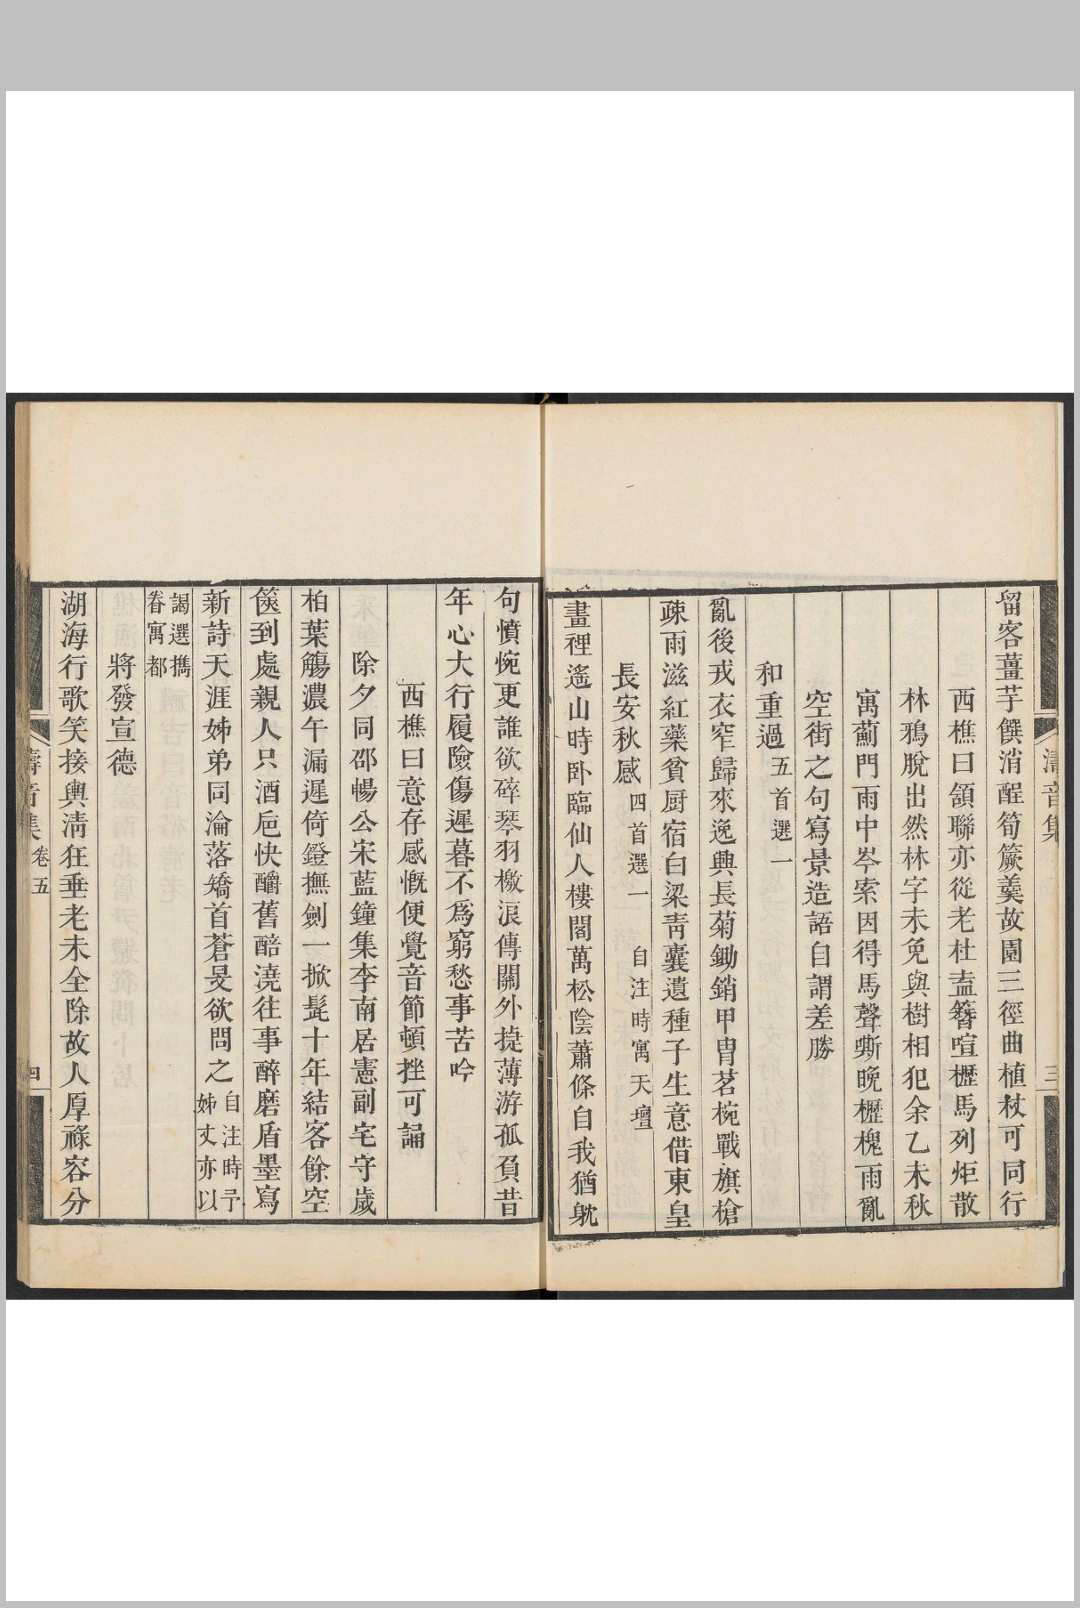 留客薑芋饌消酲筍簌羮故園三徑曲植杖可同行
西樵曰頷聯亦從老杜盍簪喧櫪馬列炬散
林鴉脫出然林字未免與樹相犯余乙未秋
寓薊門雨中岑索因得馬聲嘶晚櫪槐雨亂
空街之句寫景造語自謂差勝
和重過 五首選一
亂後戎衣窄歸來逸興長菊鋤銷甲胄茗椀戰旗槍
疎雨滋紅藥貧厨宿白梁靑囊遺種子生意借東皇
長安秋感 四首選一 自注時寓天壇
畫裡遙山時卧臨仙人樓閣萬松陰蕭條自我猶躭
濤音集 三
句憤惋更誰欲碎琴羽檄浪傳關外捷薄游孤負昔
年心大行履險傷遲暮不爲窮愁事苦吟
西樵曰意存感慨便覺音節頓挫可誦
除夕同邵暢公宋藍鐘集李南居憲副宅守歲
柏葉觴濃午漏遲倚鐙撫劍一掀髭十年結客餘空
篋到處親人只酒巵快釂舊醅澆往事醉磨盾墨寫
新詩天涯姊弟同淪落矯首蒼旻欲問之 自注時予
姊丈亦以
謁選擕
眷寓都
將發宣德
湖海行歌笑接輿淸狂垂老未全除故人厚祿容分
濤音集 卷五 四